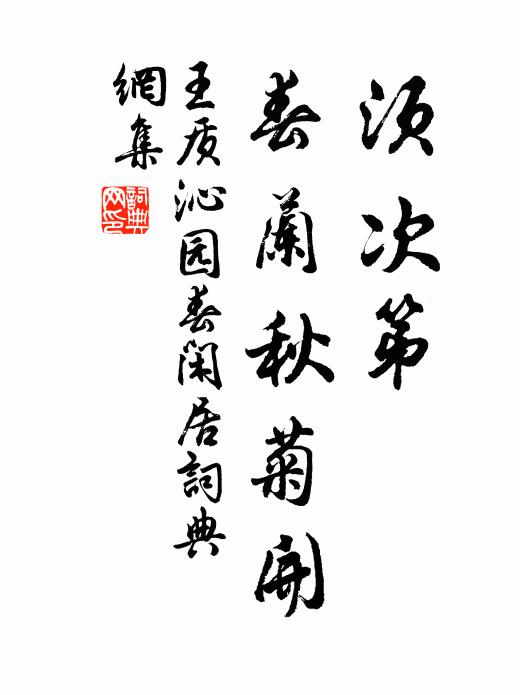 須次第
春蘭秋菊開
王质沁园春閑居詞典
網集
詞典网印